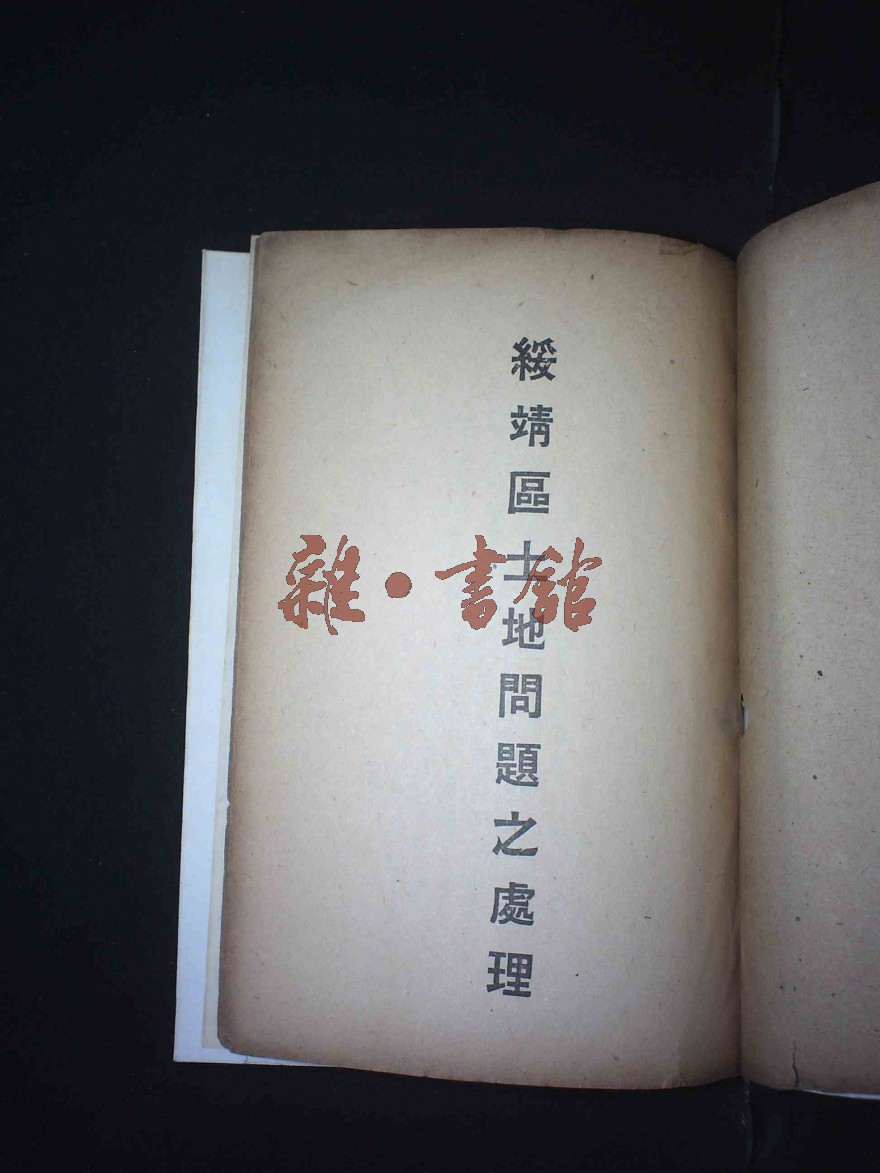 綏靖區土地問題之處理
雜·書館